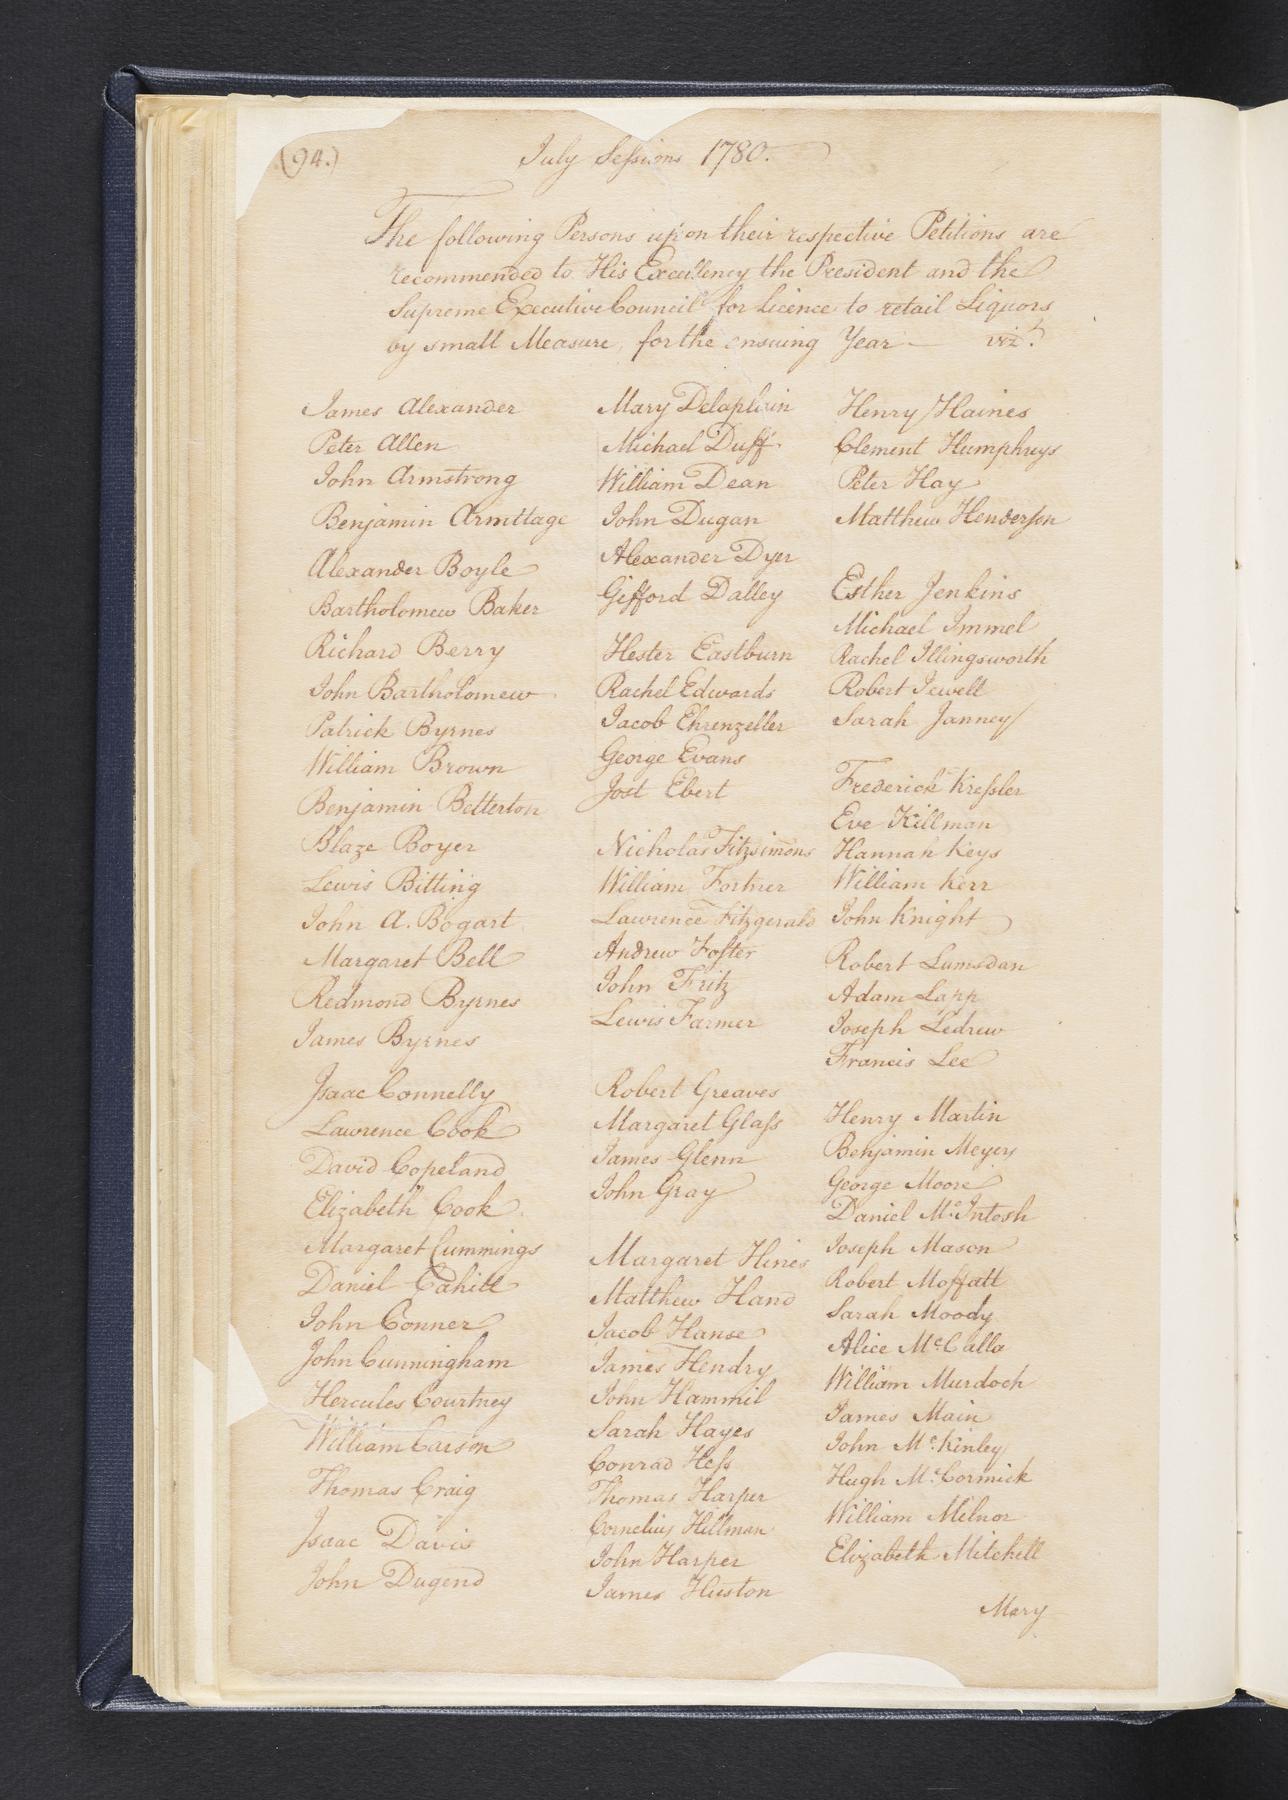 (94.)
July Sessions 1780.
The following Persons upon their respective Petitions are
recommended to His Excellency the President and the
Supreme Executive Council for licence to retail Liquors
by small Measure, for the ensuing Year — vizt.
James Alexander
Peter Allen
John Armstrong
Benjamin Armittage
Alexander Boyle
Bartholomew Baker
Richard Berry
John Bartholomew
Patrick Byrnes
William Brown
Benjamin Betterton
Blaze Boyer
Lewis Bitting
John A. Bogart
Margaret Bell
Redmond Byrnes
James Byrnes
Isaac Connelly
Lawrence Cook
David Copeland
Elizabeth Cook
Margaret Cummings
Daniel Cahill
John Conner
John Cunningham
Hercules Courtney
William Carson
Thomas Craig
Isaac Davis
John Dugend
Mary Delaplain
Michael Duff
William Dean
John Dugan
Alexander Dyer
Gifford Dalley
Hester Eastburn
Rachel Edwards
Jacob Ehrenzeller
George Evans
Jost Ebert
Nicholas Fitzsimons
William Fortner
Lawrence Fitzgerald
Andrew Foster
John Fritz
Lewis Farmer
Robert Greaves
Margaret Glass
James Glenn
John Gray
Margaret Hines
Matthew Hand
Jacob Hanse
James Hendry
John Hammil
Sarah Hayes
Conrad Hess
Thomas Harper
Cornelius Hillman
John Harper
James Huston
Henry Haines
Clement Humphreys
Peter Hay
Matthew Henderson
Esther Jenkins
Michael Immel
Rachel Illingsworth
Robert Jewell
Sarah Janney
Frederick Kressler
Eve Killman
Hannah Keys
William Kerr
John Knight
Robert Lumsdan
Adam Lapp
Joseph Ledrew
Francis Lee
Henry Martin
Benjamin Meyers
George Moore
Daniel McIntosh
Joseph Mason
Robert Moffatt
Sarah Moody
Alice McCalla
William Murdoch
James Main
John McKinley
Hugh McCormick
William Milnor
Elizabeth Mitchell
Mary